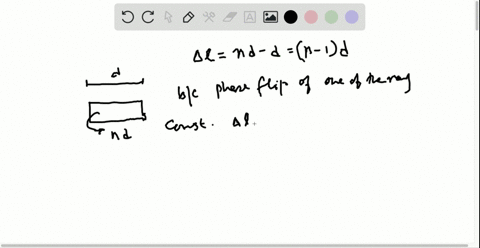 Δl = nd - d = (n-1)d
d
b/c phase flip of one of the ray
const. Δl.
nd